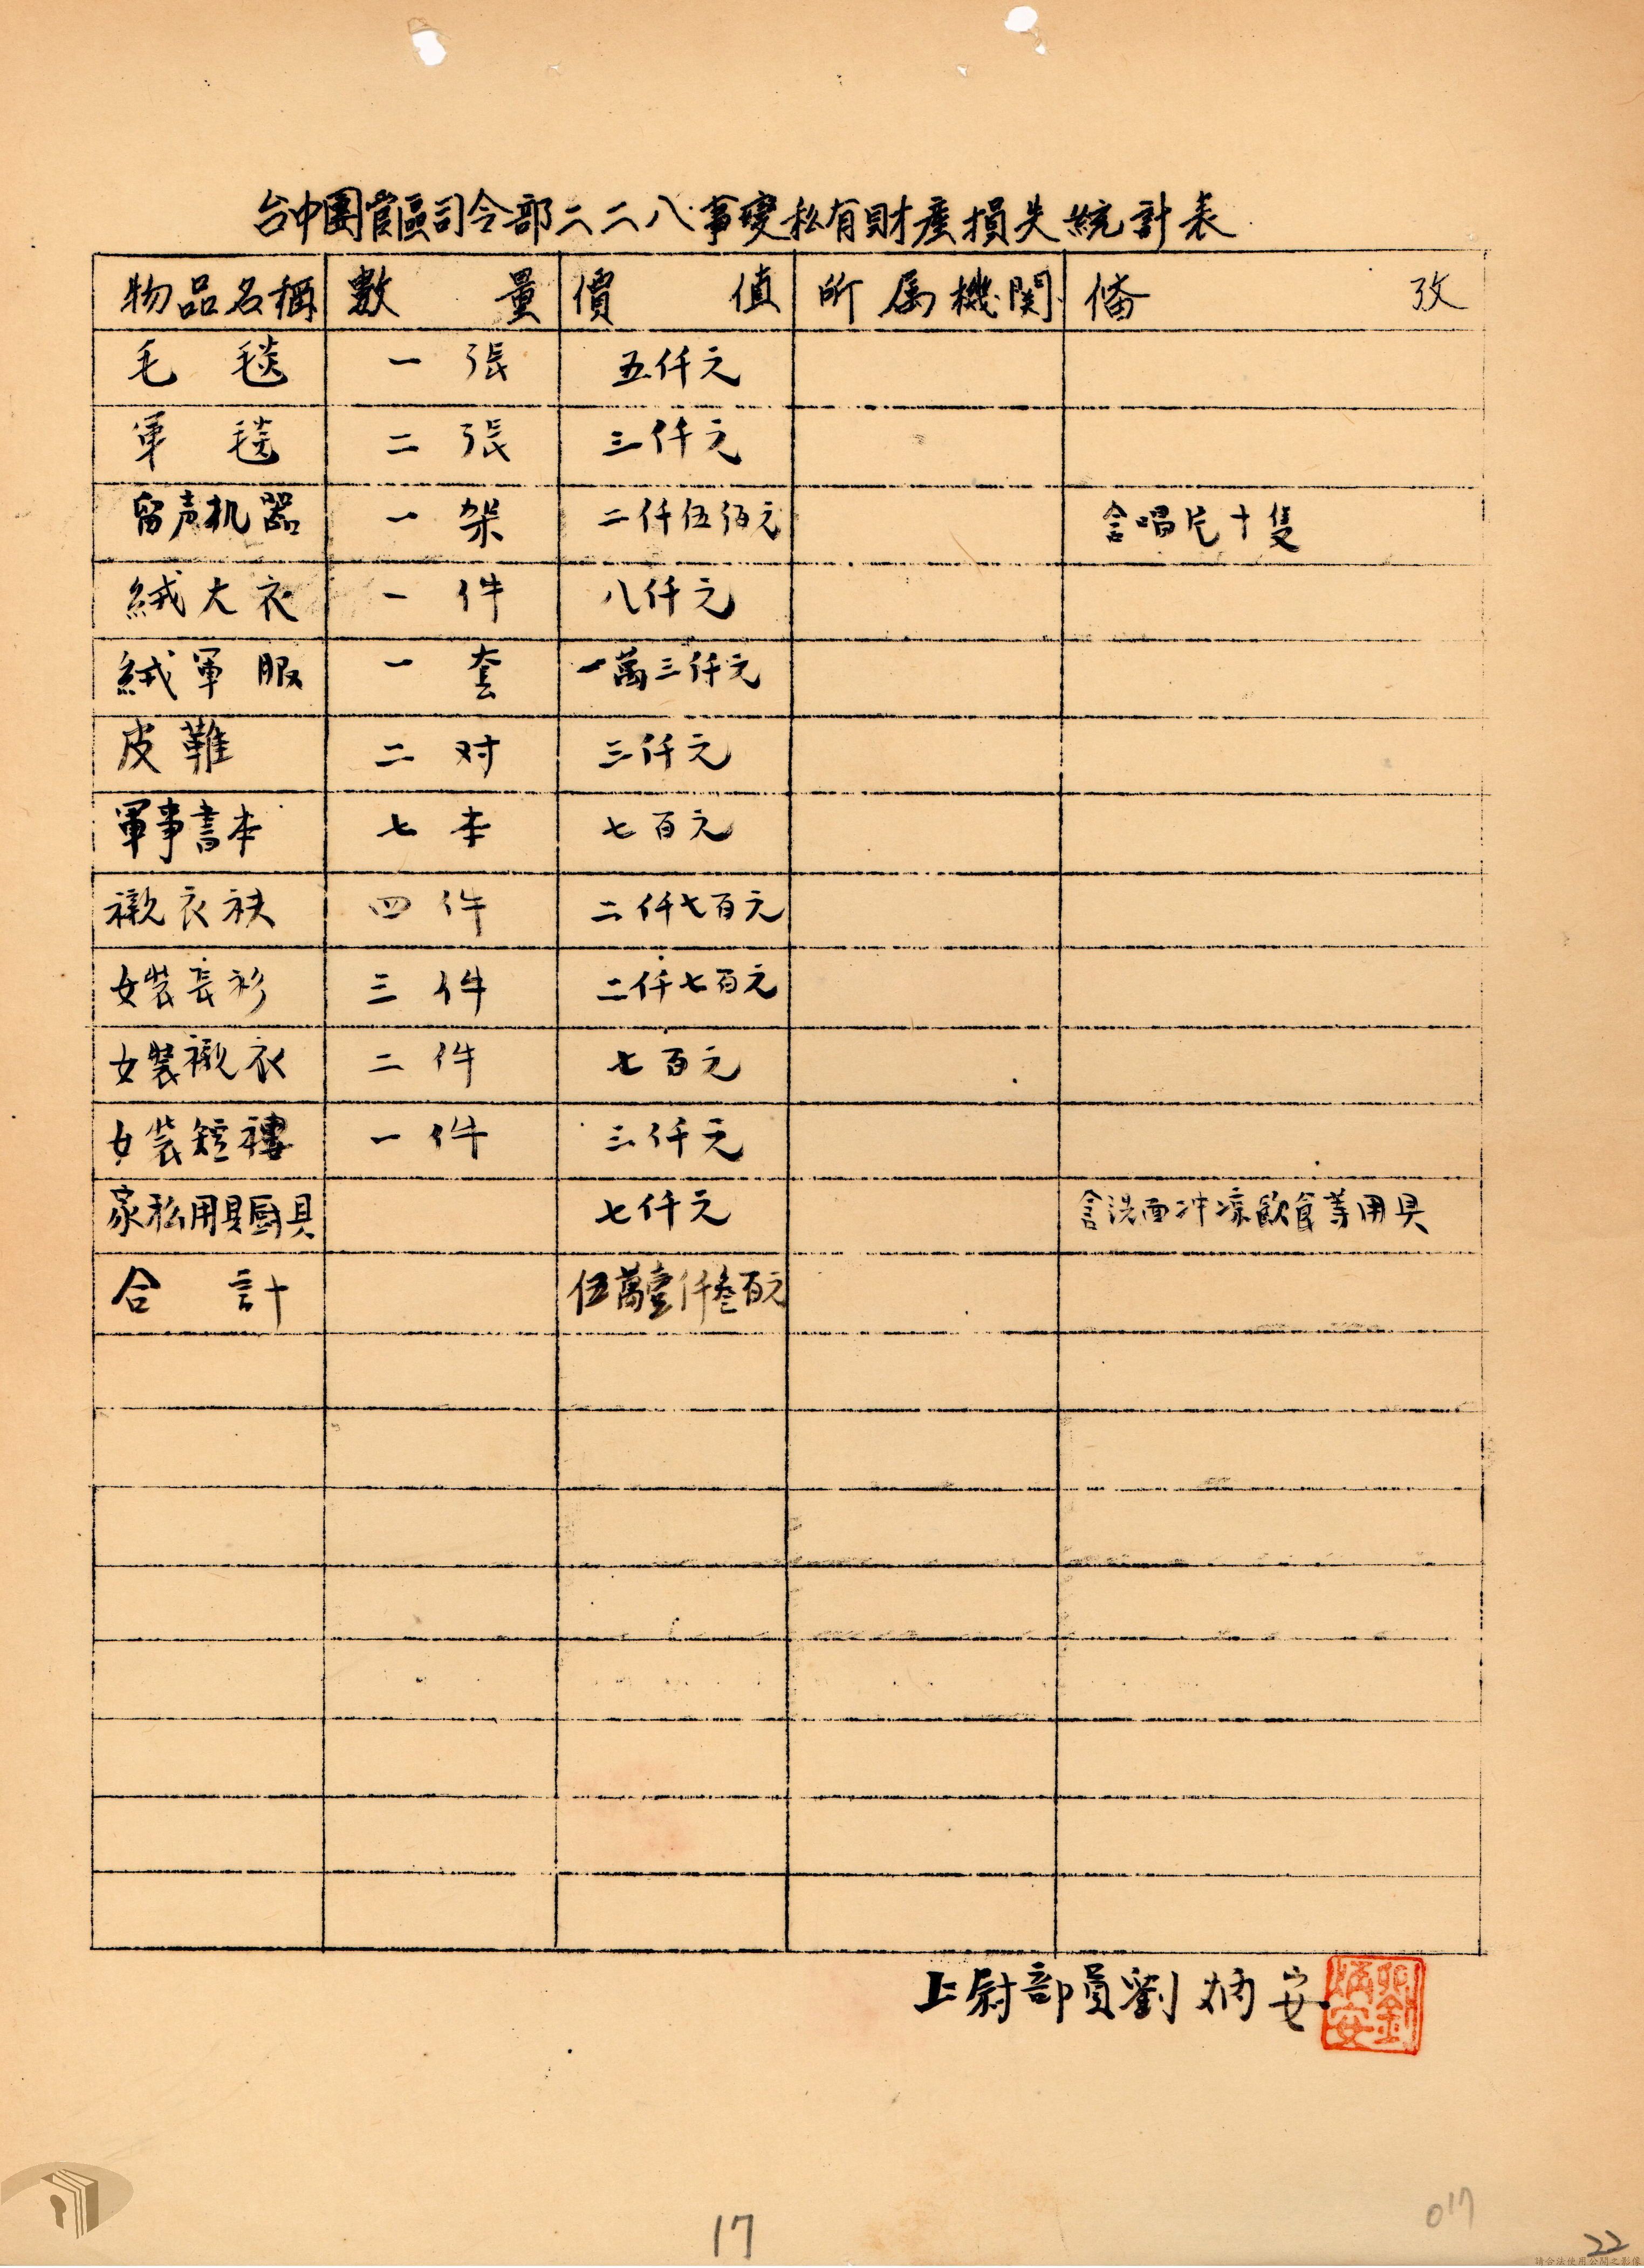 台中團管區司令部二二八事變私有財產損失統計表
物品名稱 數量 價值 所属機関 備攷
毛毯 一張 五仟元
軍毯 二張 三仟元
留声机器 一架 二仟伍佰元 含唱片十隻
絨大衣 一件 八仟元
絨軍服 一套 一萬三仟元
皮難 二对 三仟元
軍事書本 七本 七百元
襯衣衭 四件 二仟七百元
女裝長衫 三件 二仟七百元
女裝襯衣 二件 七百元
女裝短褸 一件 三仟元
家私用具厨具 七仟元 含洗面冲凉飲食等用具
合計 伍萬壹仟叁百元
上尉部員劉炳安
劉炳安
17
017
22
請合法使用公開之影像